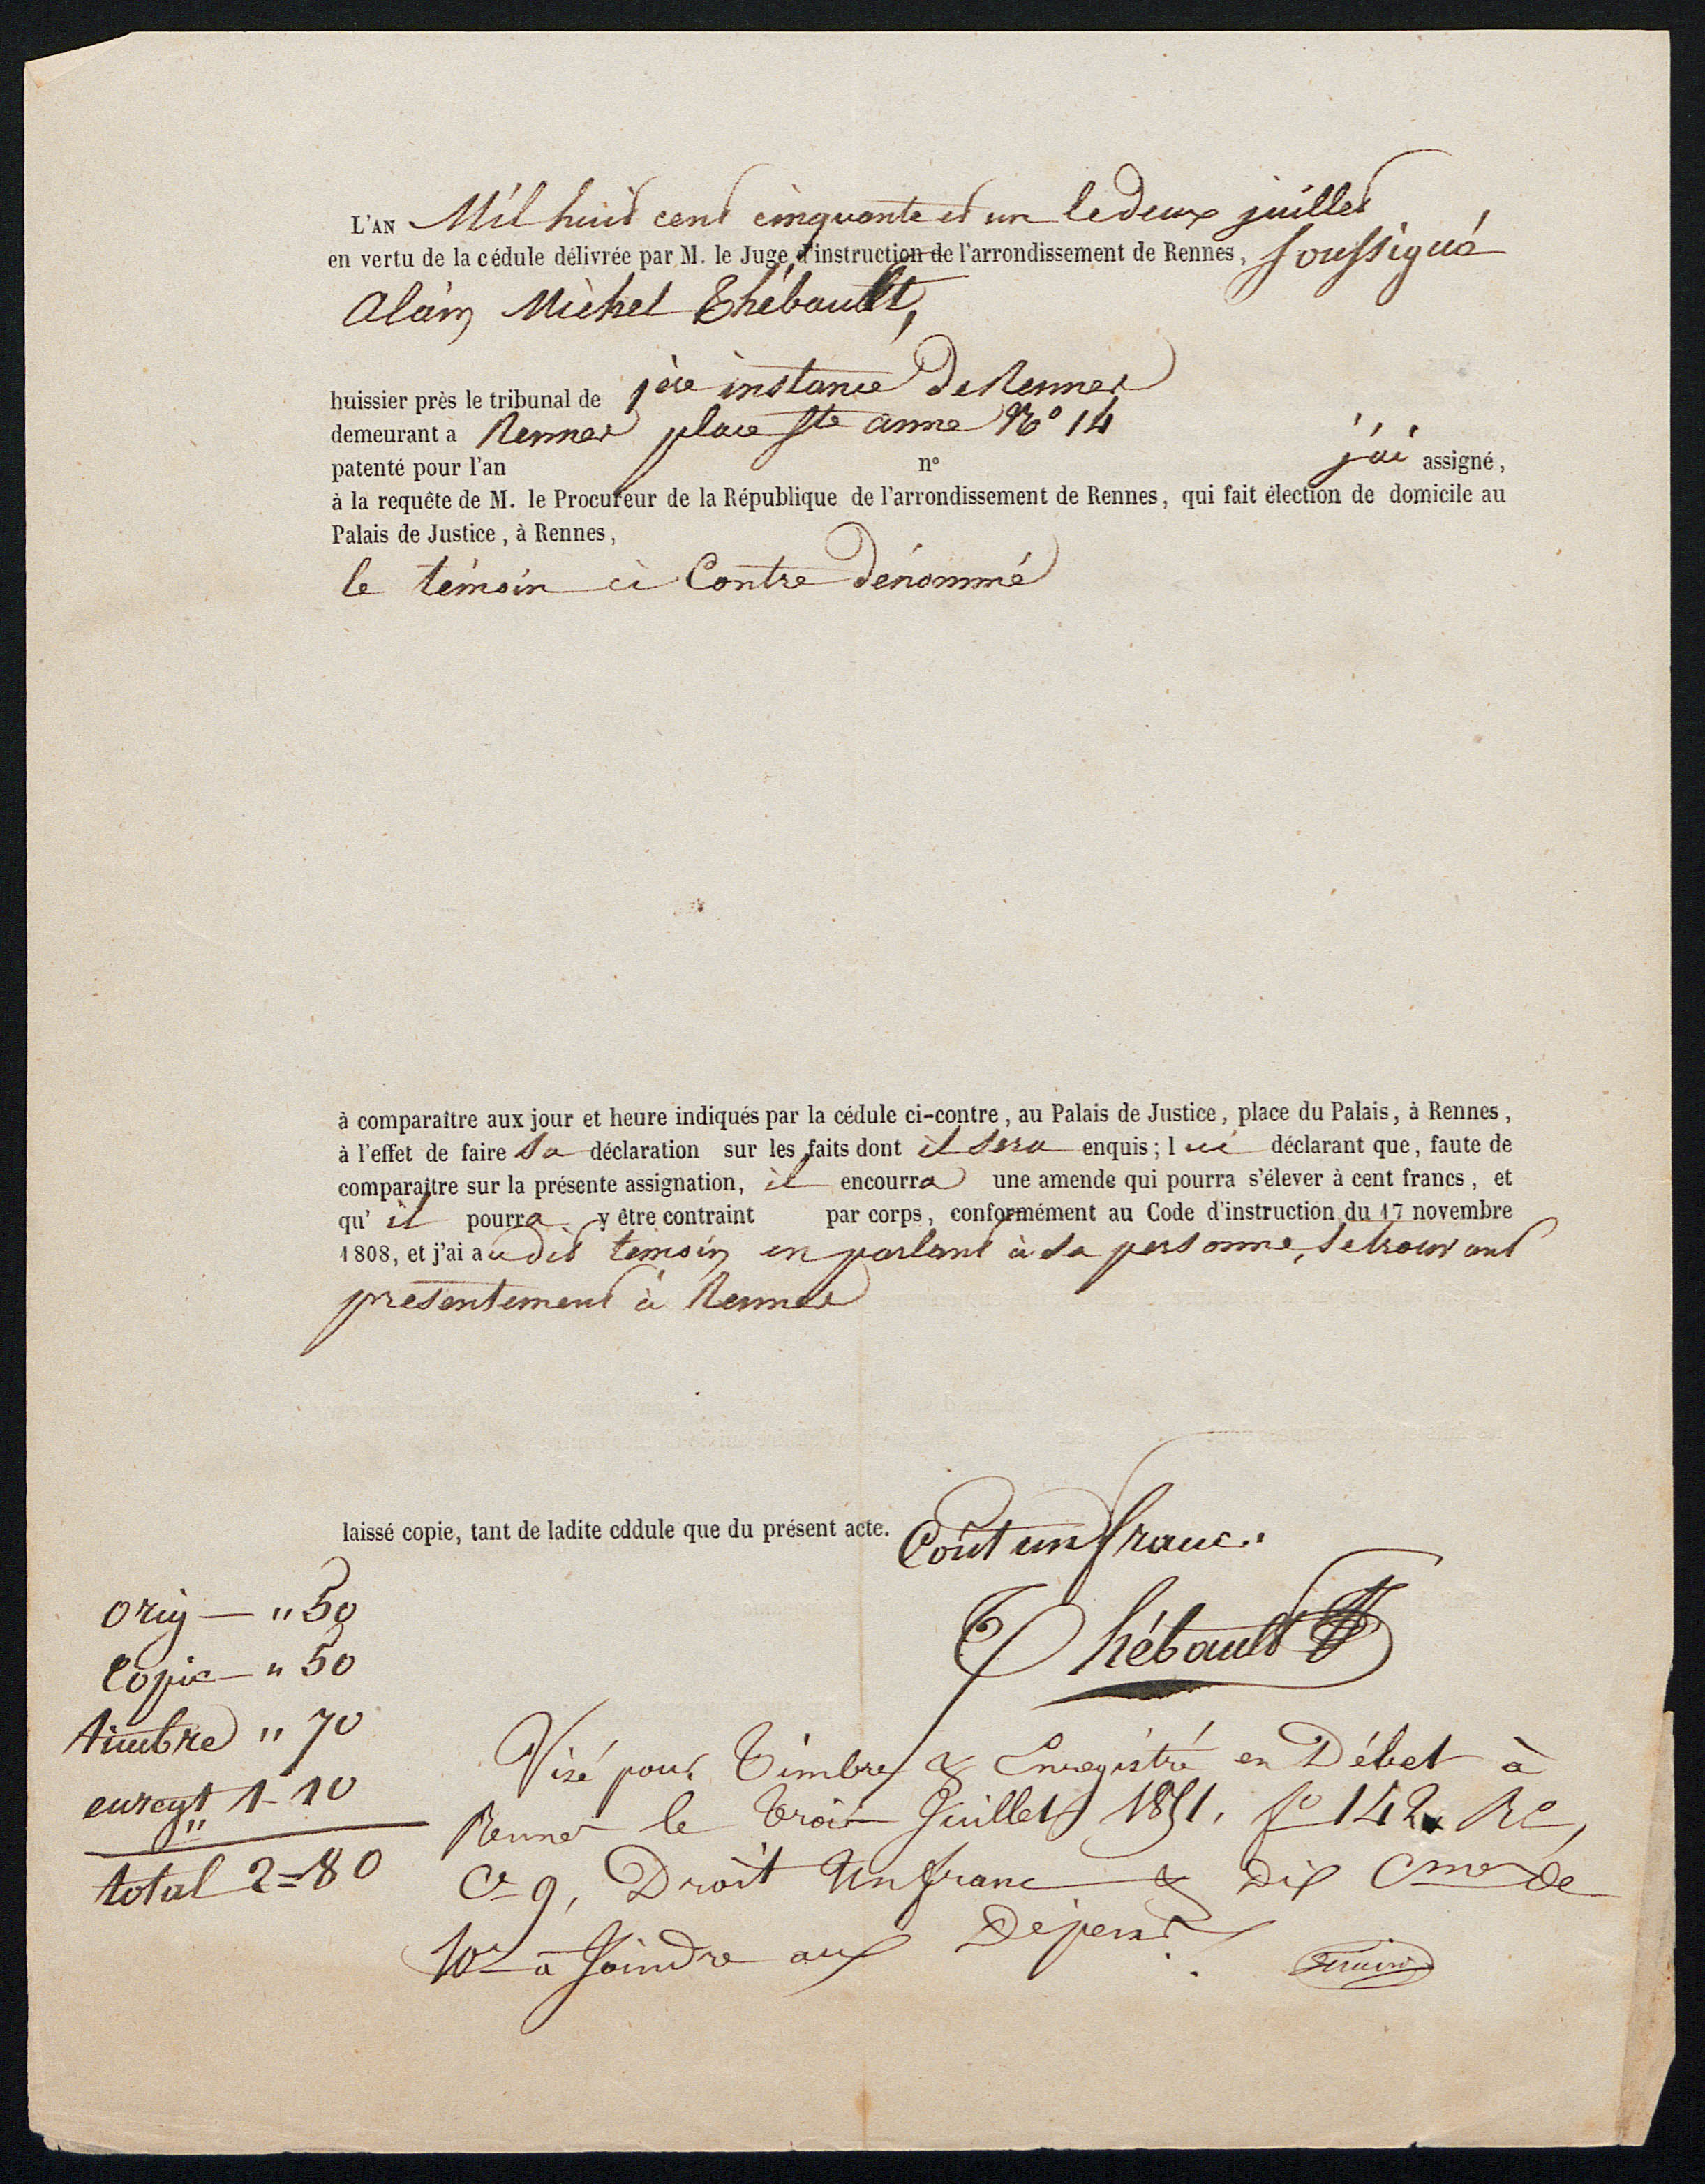 L'AN Mil huit cent cinquante et un le deux juillet
en vertu de la cédule délivrée par M. le Juge d'instruction de l'arrondissement de Rennes, soussigné
alain Michel Thébault,
huissier près le tribunal de 1ère instance de Rennes
demeurant a Rennes place Ste anne No 14
patenté pour l'an no j'ai assigné,
à la requête de M. le Procureur de la République de l'arrondissement de Rennes, qui fait élection de domicile au
Palais de Justice, à Rennes,
le témoin ci Contre dénommé
à comparaître aux jour et heure indiqués par la cédule ci-contre, au Palais de Justice, place du Palais, à Rennes,
à l'effet de faire sa déclaration sur les faits dont il sera enquis; lui déclarant que, faute de
comparaître sur la présente assignation, il encourra une amende qui pourra s'élever à cent francs, et
qu'il pourra y être contraint par corps, conformément au Code d'instruction du 17 novembre
1808, et j'ai audit temoin en parlant à sa personne, se trouvant
présentement à Rennes
laissé copie, tant de ladite cddule que du présent acte. Coût un franc.
Thébault
orig — " 50
Copie — " 50
timbre " 70
enregt 1-10
total 2=80
Visé pour Timbre & Enregistré en Débet à
Rennes le trois Juillet 1851. fo 142 Ro,
Ce 9, Droit Un franc & dix Cmes de
10e à Joindre aux Dépens.